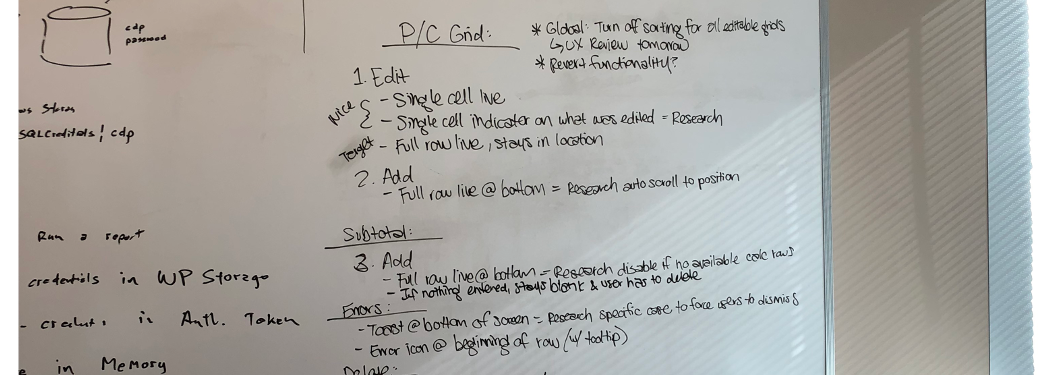 cdp
password
Stores
SQLCreditals! cdp
Run a report
credentials in WP Storage
- in Auth. Token
in Memory
P/C Grid:
* Global: Turn off sorting for all editable grids
↳ UX Review tomorrow
* Revert functionality?
1. Edit
Nice { - Single cell live
- Single cell indicator on what was edited = Research
Target - Full row live, stays in location
2. Add
- Full row live @ bottom = Research auto scroll to position
Subtotal:
3. Add
- Full row live @ bottom = Research disable if no available calc rows
- If nothing entered, stays blank & user has to delete
Errors:
- Toast @ bottom of screen = Research specific case to force users to dismiss
- Error icon @ beginning of row (w/ tooltip)
Delete: